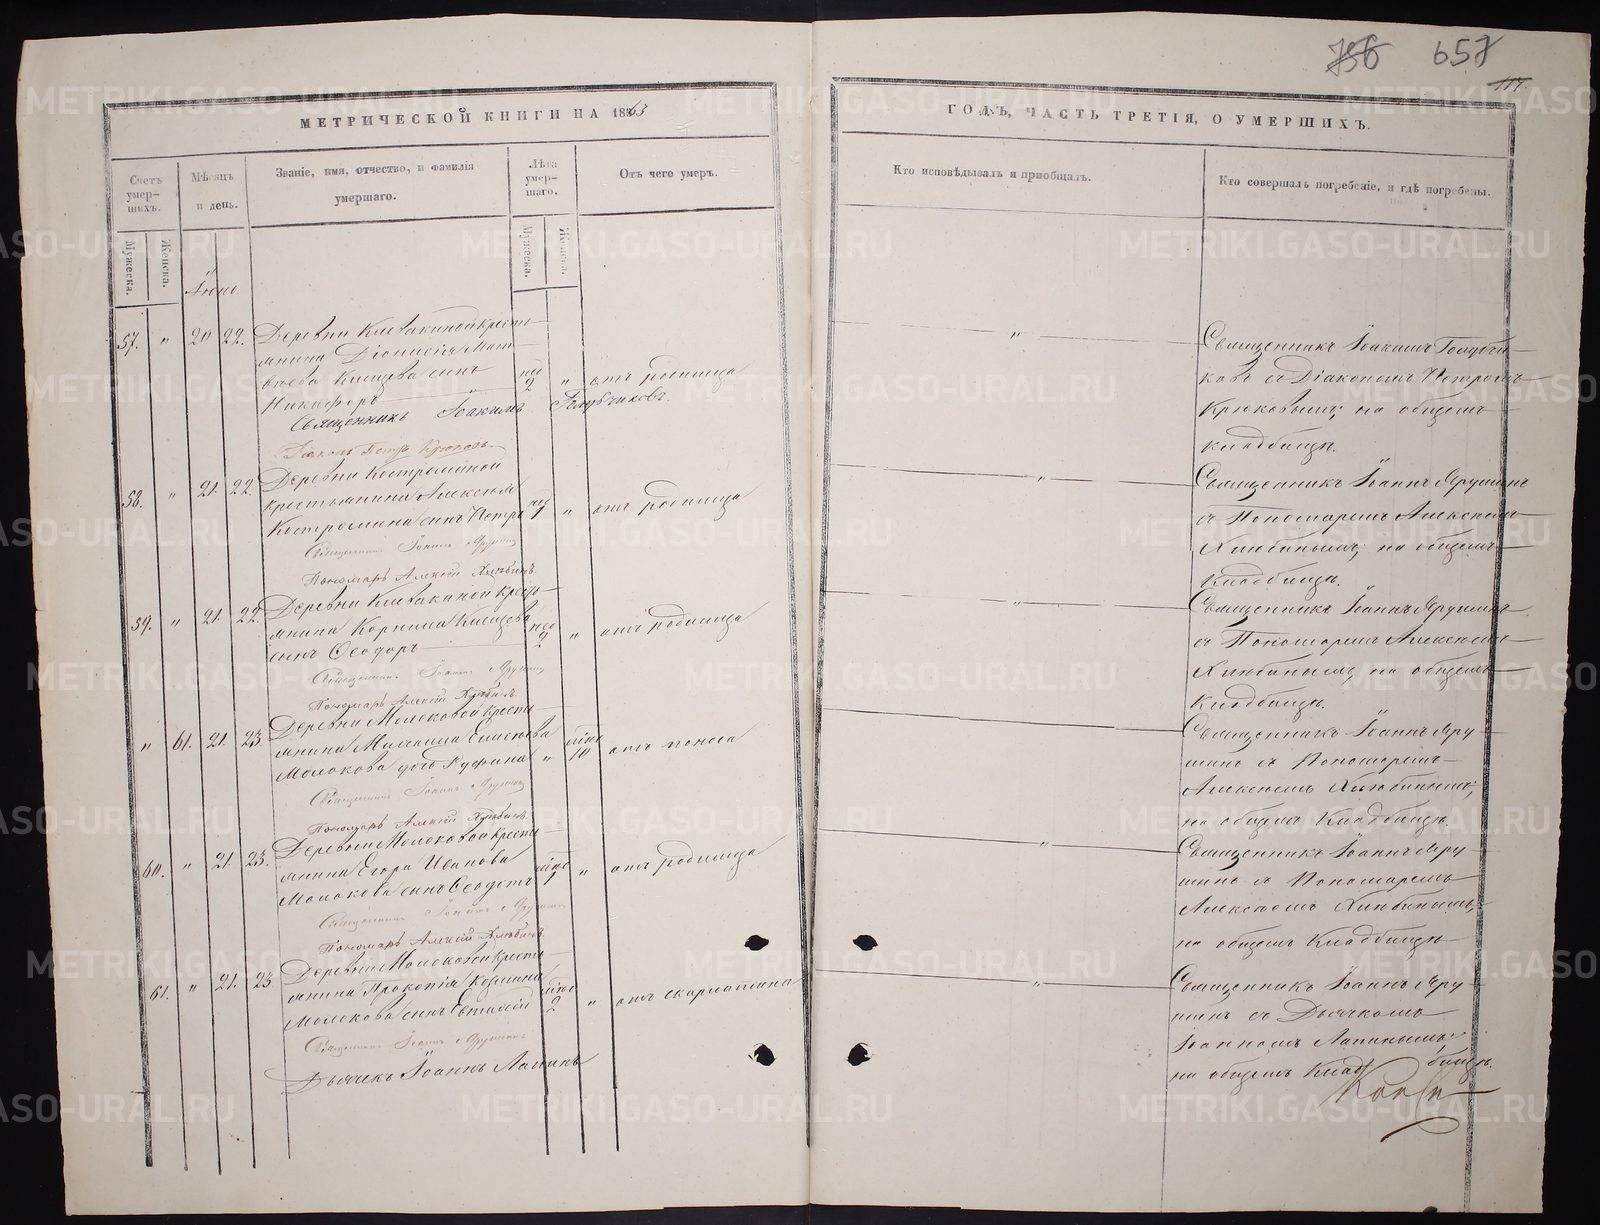 756 657
117.
МЕТРИЧЕСКОЙ КНИГИ НА 1863
ГОДЪ, ЧАСТЬ ТРЕТІЯ, О УМЕРШИХЪ.
Счетъ умер-шихъ.
Мужеска.
Женска.
Мѣсяцъ и день.
Званіе, имя, отчество, и фамилія умершаго.
Лѣта умер-шаго.
Мужеска.
Женска.
Отъ чего умеръ.
Кто исповѣдывалъ и пріобщалъ.
Кто совершалъ погребеніе, и гдѣ погребены.
57. " 20 22. Деревни Клевакиной кресть-
янина Діонисія Мат-
вѣева Кисцева сынъ
Никифоръ
2 " отъ родимца
Священникъ Іоакимъ Голубчиковъ.
Діаконъ Петръ Крюковъ.
Священникъ Іоакимъ Голубчи-
ковъ съ Діакономъ Петромъ
Крюковымъ; на общемъ
кладбищѣ.
58. " 21. 22. Деревни Костроминой
крестьянина Алексѣя
Костромина сынъ Петръ
" отъ родимца
Священникъ Іоаннъ Ярушинъ
Пономарь Алексій Хлюбинъ.
Священникъ Іоаннъ Ярушинъ
съ Пономаремъ Алексѣемъ
Хлюбинымъ; на общемъ
кладбищѣ.
59. " 21. 22. Деревни Клевакиной кресть-
янина Корнила Кисцева
сынъ Ѳеодоръ
2 " отъ родимца
Священникъ Іоаннъ Ярушинъ
Пономарь Алексій Хлюбинъ.
Священникъ Іоаннъ Ярушинъ
съ Пономаремъ Алексѣемъ
Хлюбинымъ, на общемъ
Кладбищѣ.
" 61. 21. 23. Деревни Молоковой кресть-
янина
Молокова дочь Руфина
" 10 отъ поноса
Священникъ Іоаннъ Ярушинъ
Пономарь Алексій Хлюбинъ.
Священникъ Іоаннъ Яру-
шинъ съ Пономаремъ
Алексѣемъ Хлюбинымъ,
на общемъ Кладбищѣ
60. " 21. 23. Деревни Молоковой кресть-
янина Егора Иванова
Молокова сынъ Ѳеодотъ
1 " отъ родимца
Священникъ Іоаннъ Ярушинъ
Пономарь Алексій Хлюбинъ.
Священникъ Іоаннъ Яру-
шинъ съ Пономаремъ
Алексѣемъ Хлюбинымъ,
на общемъ Кладбищѣ
61. " 21. 23 Деревни Молоковой кресть-
янина Прокопія Козмина
Молокова сынъ Евтихій
2 " отъ скарлатина
Священникъ Іоаннъ Ярушинъ
Дьячекъ Іоаннъ Лапинъ
Священникъ Іоаннъ Яру-
шинъ съ Дьячкомъ
Іоанномъ Лапинымъ
на общемъ Кладбищѣ.
METRIKI.GASO-URAL.RU